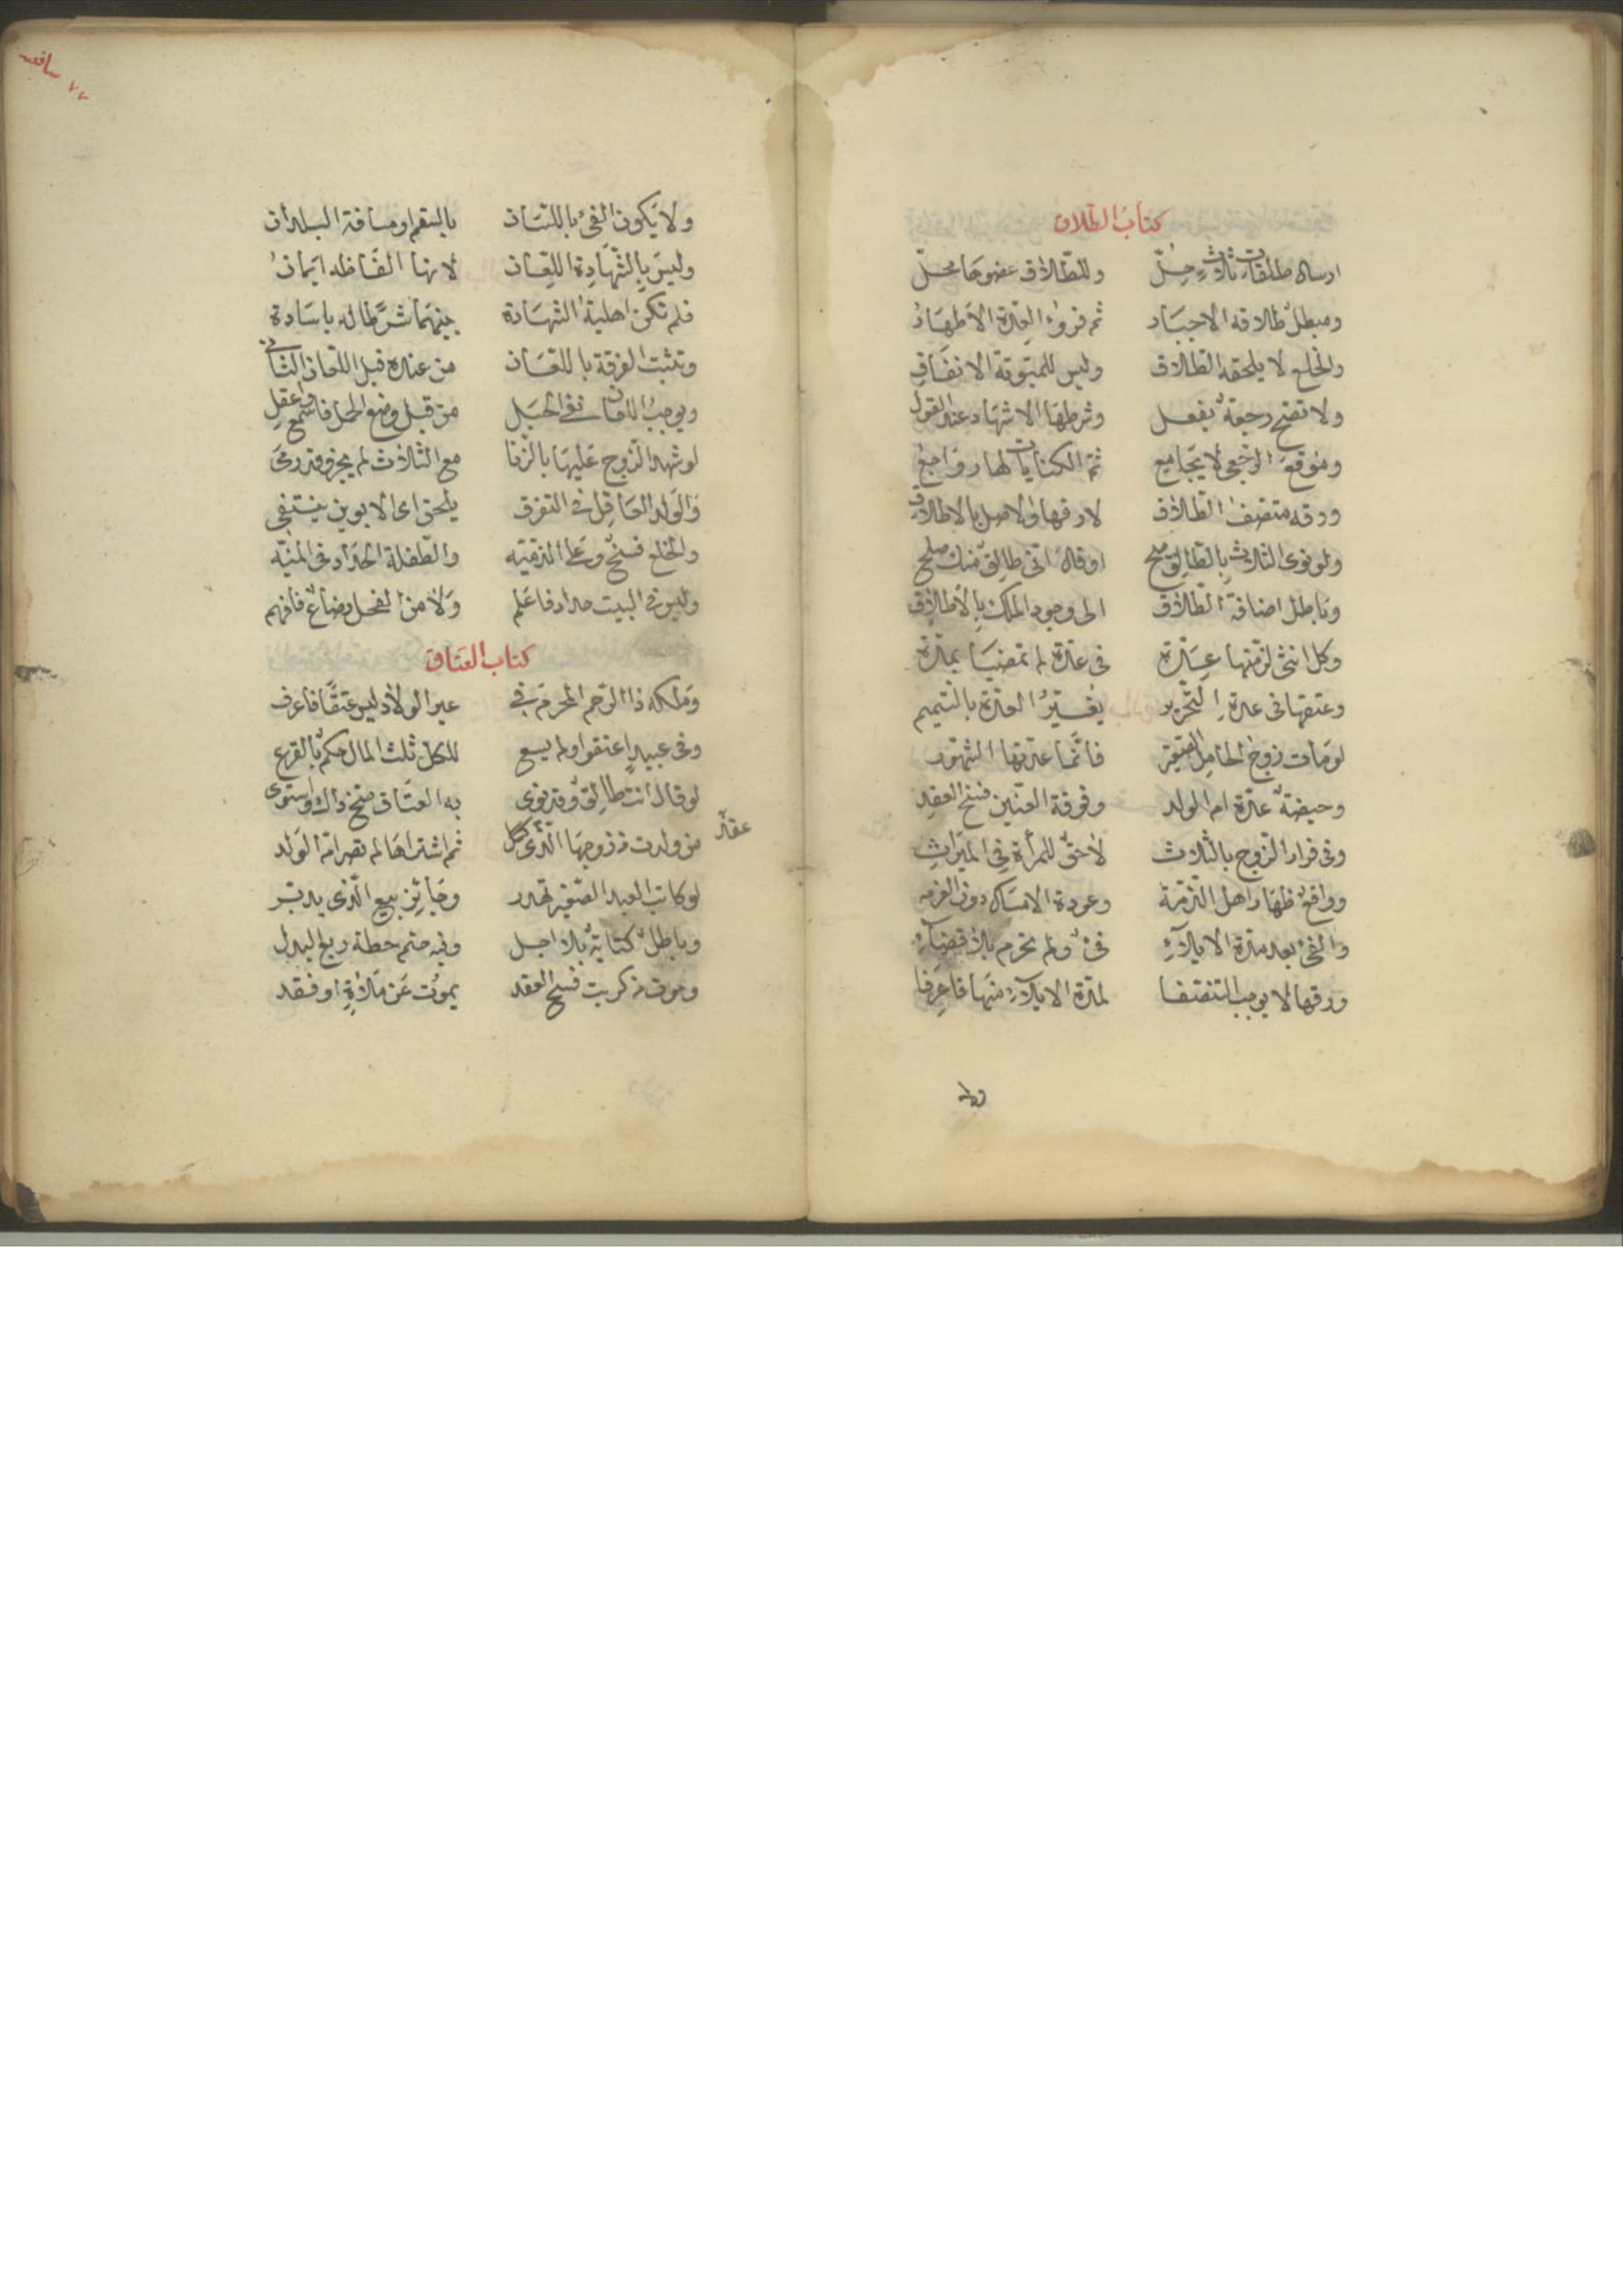 كتاب الطلاق
ارساله طلقات ثلاث حل وللطلاق عضوها محل
ومبطل طلاقه الاجبار ثم قروء العدة الاطهار
والخلع لا يلحقه الطلاق وليس للمبتوتة الانفاق
ولا تصح رجعة بفعل وشرطها الاشهاد عند القول
وموقع الرجعي لا يجامع ثم الكنايات لها رواجع
ورقه منصف الطلاق لا رقها والاصل بالاطلاق
ولو نوى الثلاث بالطالق صح او قال انى طالق منك صلح
وباطل اضافة الطلاق الى وجود الملك بالاطلاق
وكل انثى لزمتها عدة فى عدة لم تمضيا بمدة
وعتقها فى عدة التحرير يغير العدة بالتتميم
لو مات زوج الحامل الصغير فانما عدتها الشهور
وحيضة عدة ام الولد وفرقة العنين فسخ العقد
وفى فرار الزوج بالثلاث لا حق للمرأة فى الميراث
وواقع ظهار اهل الذمة وعودة الامساك دون العزمه
والفئ بعد مدة الايلاء فئ ولم تحرم بلا قضاء
ورقها لا يوجب التنصفا لمدة الايلاء منها فاعرفا
ولا
٧٧
ولا يكون الفئ باللسان بالسقم او مسافة البلدان
وليس بالشهادة اللعان لانها الفاظه ايمان
فلم تكن اهلية الشهادة
وتثبت الفرقة باللعان من عنده قبل اللعان الثانى
ويوجب اللعان نفى الحبل من قبل وضع الحمل فاسمع واعقل
لو شهد الزوج عليها بالزنا مع الثلاث لم يجز وقد رمى
والولد العاقل فى التفرق يلحق اى الابوين ينتقى
والخلع فسخ وعلى الذميه والطفلة الحداد فى المنيه
وليس فى البيت حداد فاعلم ولا من الفحل رضاع فافهم
كتاب العتاق
وملكه ذا الرحم المحرم فى غير الولاد ليس عتقا فاعرف
وفى عبيد اعتقوا ولم يسع للكل ثلث المال حكم بالقرع
لو قال انت طالق وقد نوى به العتاق صح ذاك واستوى
من ولدت من زوجها الذى عقد ثم اشتراها لم تصر ام الولد
لو كاتب العبد الصغير تهدر وجائز بيع الذى يدبر
وباطل كتابة بلا اجل وفيه حتم حطه ربع البدل
وموت من كوتب فسخ العقد يموت عن ملاءة او فقد